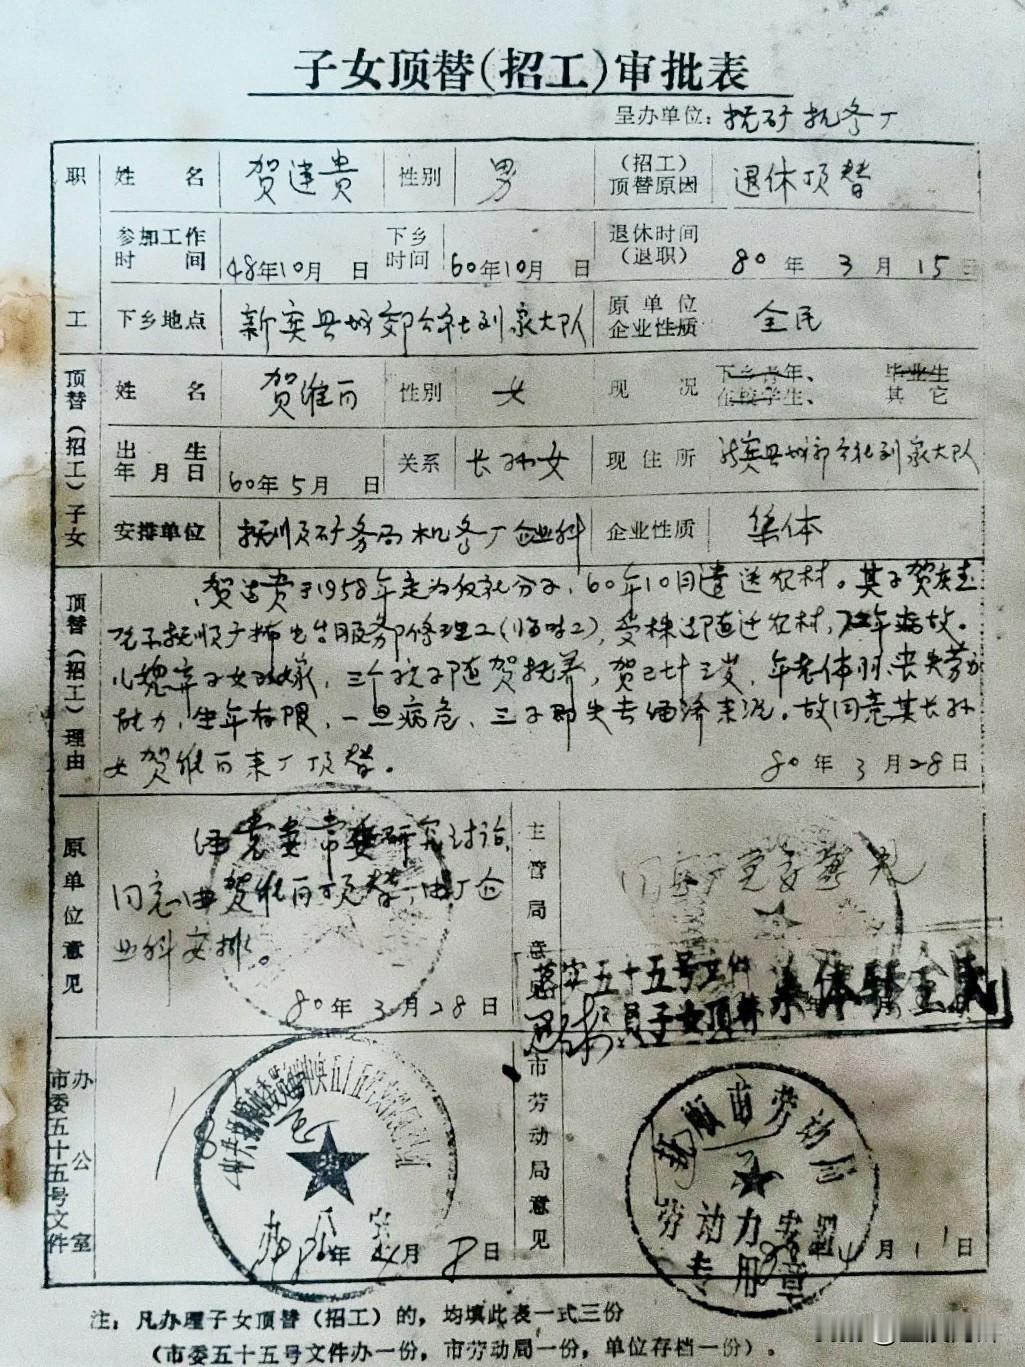 子女顶替(招工)审批表
呈办单位：抚矿机修厂
职 姓名 贺连贵 性别 男 (招工)顶替原因 退休顶替
参加工作时间 48年10月 日 下乡时间 60年10月 日 退休时间(退职) 80年3月15日
工 下乡地点 新宾县城郊公社刘家大队 原单位企业性质 全民
顶替(招工)子女 姓名 贺维 性别 女 现况 下乡青年、毕业生
在校学生、其它
出生年月日 60年5月 日 关系 长孙女 现住所 新宾县城郊公社刘家大队
安排单位 抚顺矿务局机修厂企业科 企业性质 集体
顶替(招工)理由
贺连贵于1958年定为 分子，60年10月遣送农村。其子贺
抚顺 服务部修理工(临时工)，受株连随迁农村， 年病故。
儿媳弃子女改嫁，三个孩子随贺抚养，贺已七十三岁，年老体弱，丧失劳动
能力，生年有限，一旦病危，三子即失去经济来源。故同意其长孙
女贺维 来厂顶替。 80年3月28日
原单位意见
经党委常委研究讨论，
同意由贺维 顶替，由厂企
业科安排。
80年3月28日
主管局意见
同意厂党委意见
落实五十五号文件
子女顶替
集体转全民
市委五十五号文件办公室
办公室
80年4月8日
市劳动局意见
抚顺市劳动局
劳动力
专用章
80年4月11日
注：凡办理子女顶替(招工)的，均填此表一式三份
(市委五十五号文件办一份，市劳动局一份，单位存档一份)。